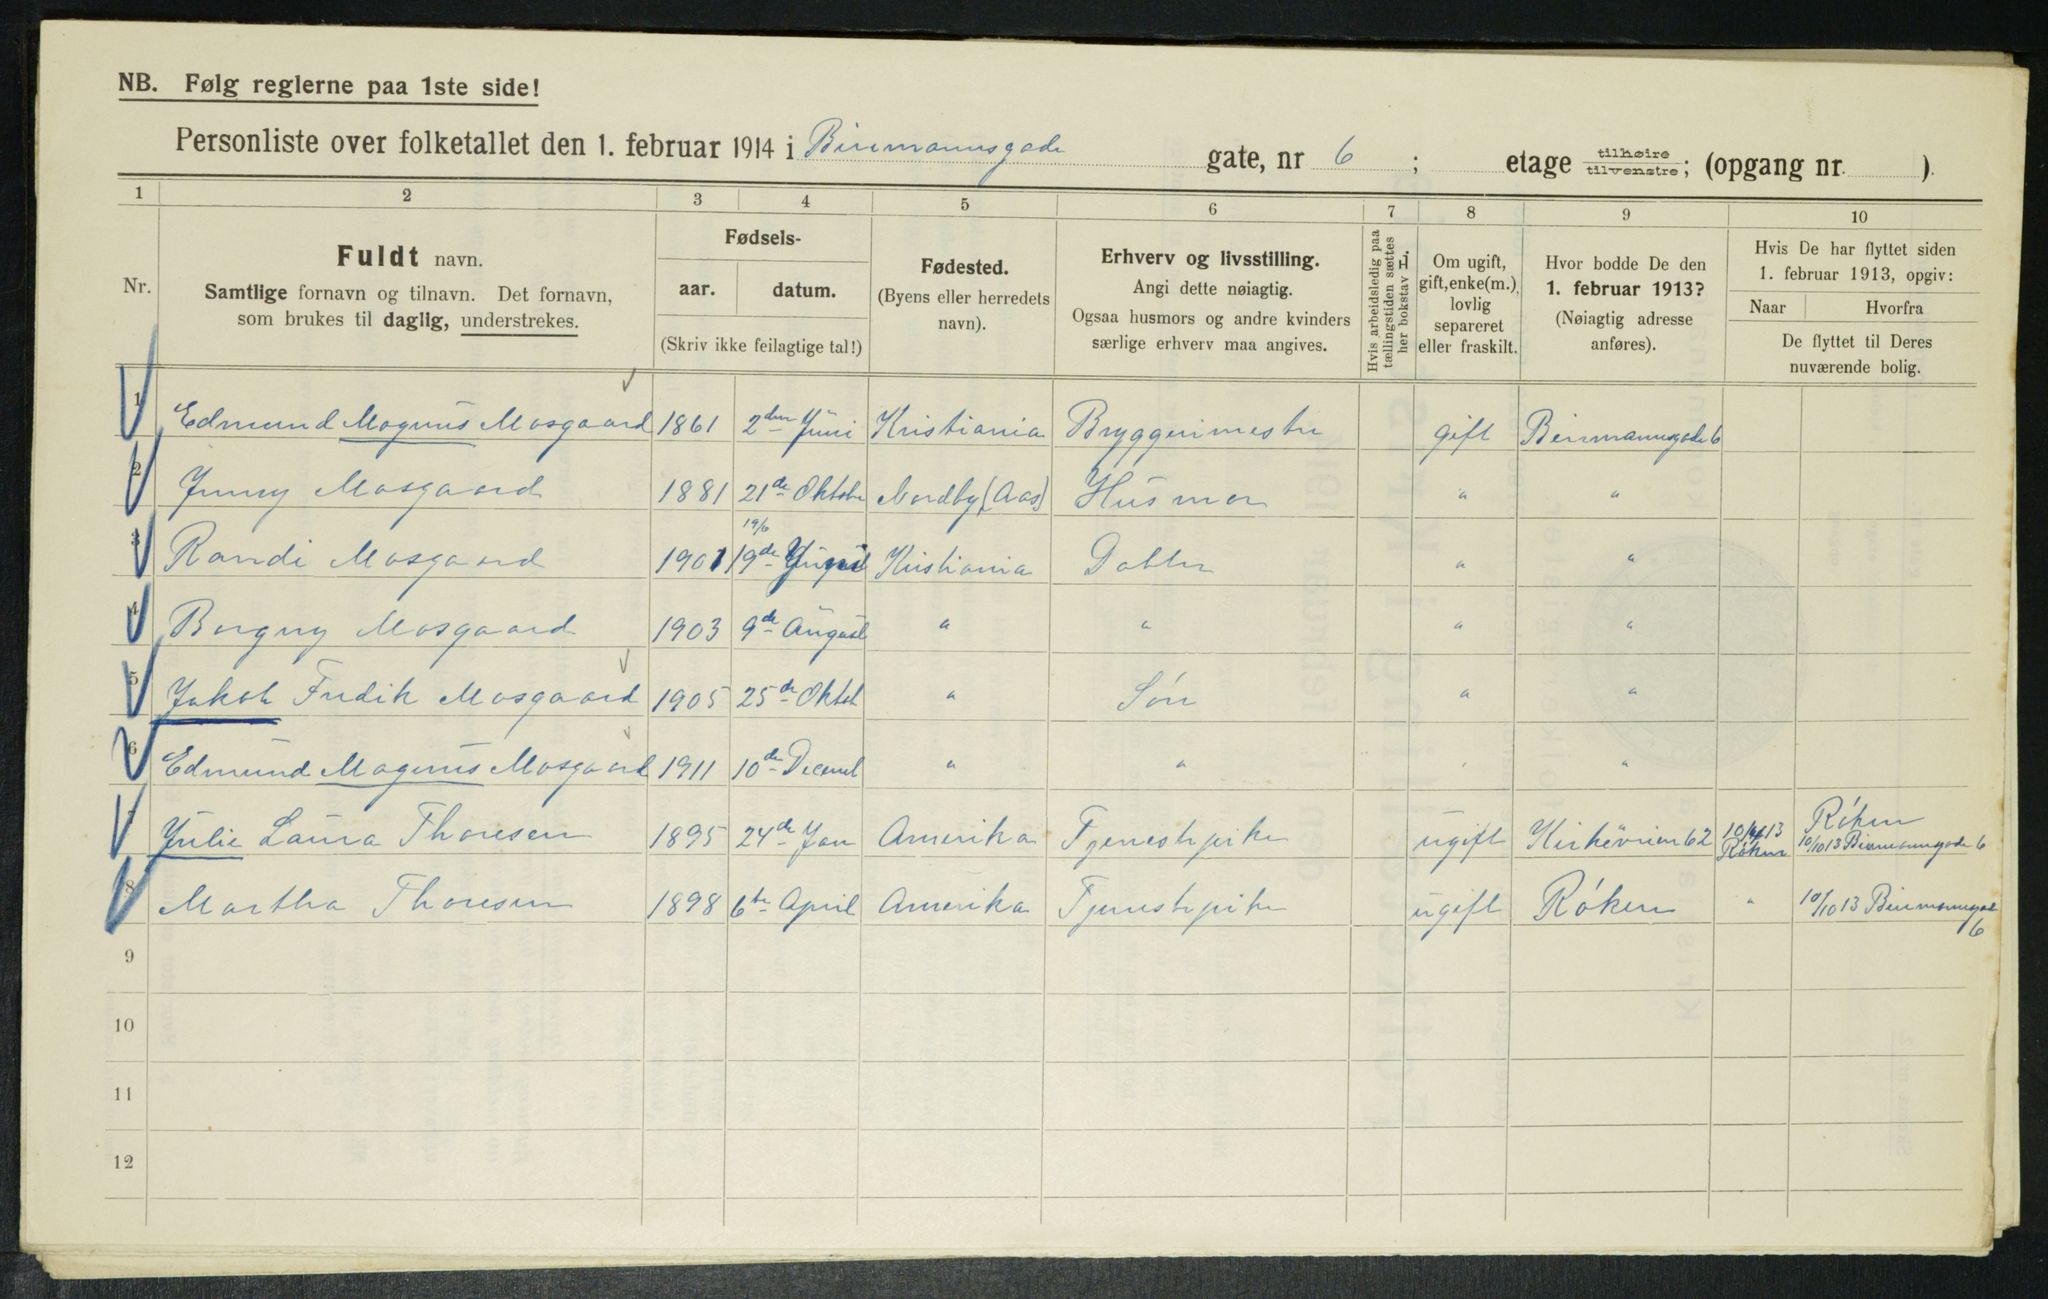 NB. Følg reglerne paa 1ste side!
Personliste over folketallet den 1. februar 1914 i Biermannsgade gate, nr 6 ; etage tilhøire / tilvenstre; (opgang nr. ).
1 2 3 4 5 6 7 8 9 10
Nr.
Fuldt navn.
Samtlige fornavn og tilnavn. Det fornavn,
som brukes til daglig, understrekes.
Fødsels-
aar. datum.
(Skriv ikke feilagtige tal!)
Fødested.
(Byens eller herredets
navn).
Erhverv og livsstilling.
Angi dette nøiagtig.
Ogsaa husmors og andre kvinders
særlige erhverv maa angives.
Hvis arbeidsledig paa
tællingstiden sættes
her bokstav L.
Om ugift,
gift, enke(m.),
lovlig
separeret
eller fraskilt.
Hvor bodde De den
1. februar 1913?
(Nøiagtig adresse
anføres).
Hvis De har flyttet siden
1. februar 1913, opgiv:
Naar Hvorfra
De flyttet til Deres
nuværende bolig.
1 Edmund Magnus Mosgaard 1861 2den Juni Kristiania Bryggerimester gift Biermannsgade 6
2 Jenny Mosgaard 1881 21de Oktober Nordby (Aas) Husmor " "
19/6
3 Randi Mosgaard 1901 19de Kristiania Datter " "
4 Borgny Mosgaard 1903 9de August " " " "
5 Jakob Fredik Mosgaard 1905 25de Oktob " Søn " "
6 Edmund Magnus Mosgaard 1911 10de Decemb " " " "
7 Julie Laura Thoresen 1895 24de Jan Amerika Tjenestpike ugift Kirkeveien 62 Røken Røken
10/10 13 Biermannsgade 6
8 Martha Thoresen 1898 6te April Amerika Tjenestpike ugift Røken " 10/10 13 Biermannsgade
6
9
10
11
12